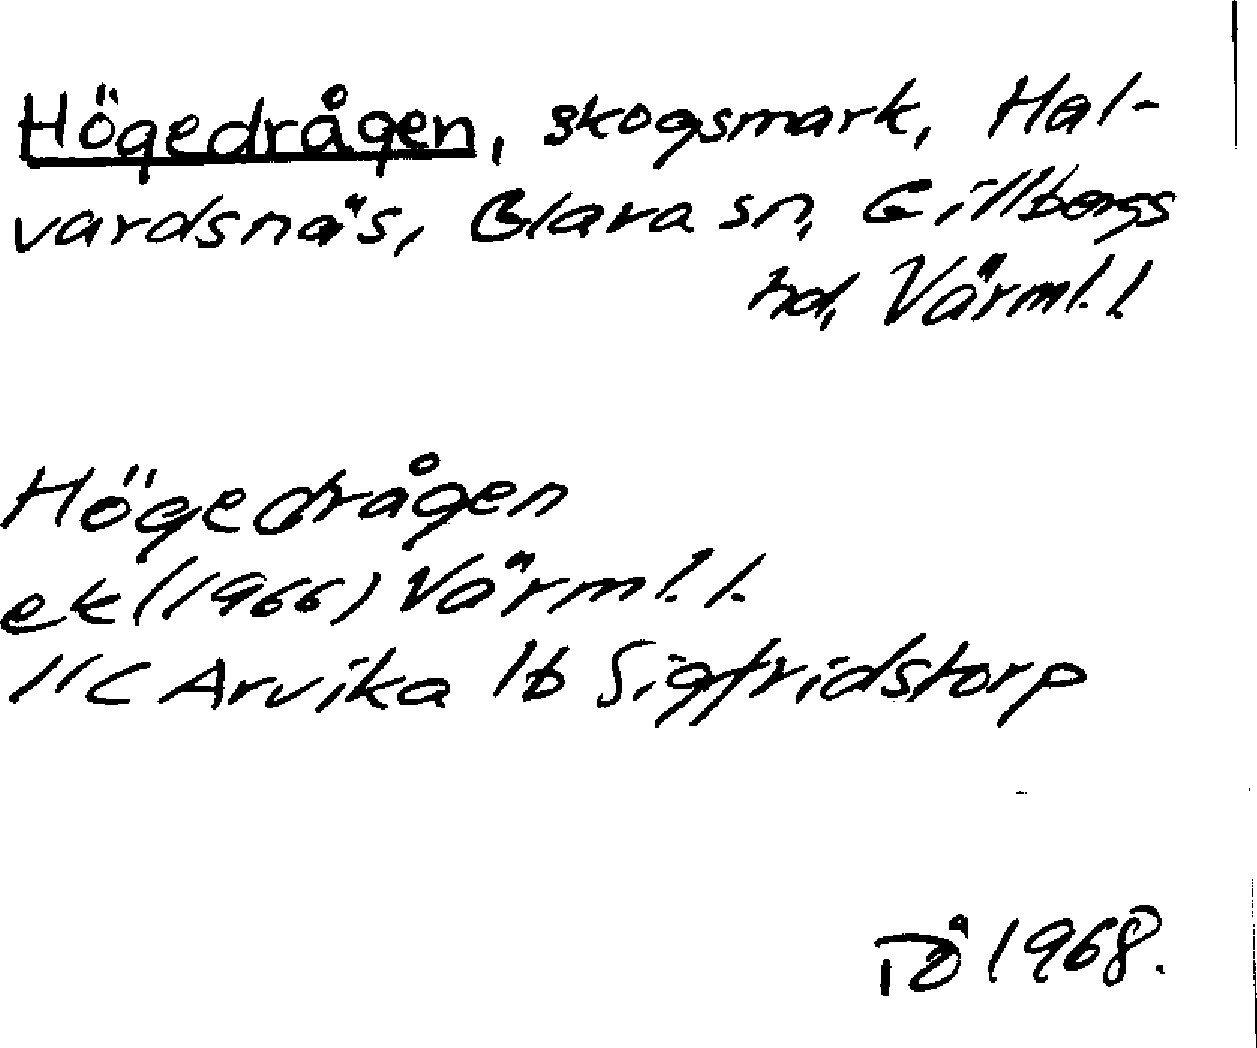 Högedrågen, skogsmark, Hal-
vardsnäs, Glava sn, Gillbergs
hd, Värml. l.
Högedrågen
ek (1966) Värml. l.
11C Arvika 1b Sigfridstorp
TÖ 1968.